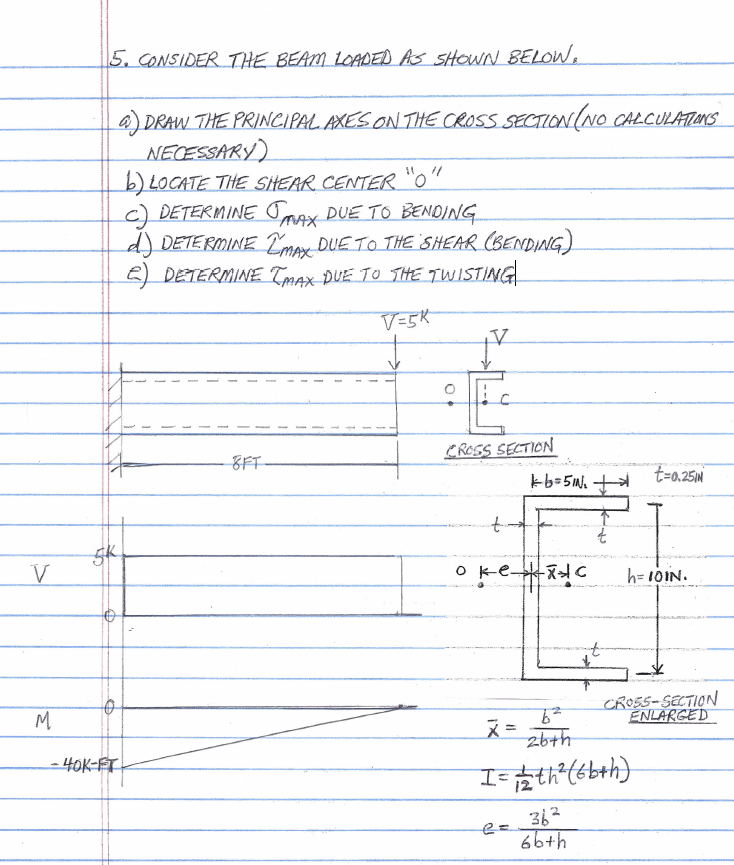 5. CONSIDER THE BEAM LOADED AS SHOWN BELOW.
a) DRAW THE PRINCIPAL AXES ON THE CROSS SECTION (NO CALCULATIONS
NECESSARY)
b) LOCATE THE SHEAR CENTER "O"
c) DETERMINE σMAX DUE TO BENDING
d) DETERMINE τMAX DUE TO THE SHEAR (BENDING)
e) DETERMINE τMAX DUE TO THE TWISTING
V=5K
V
O
C
CROSS SECTION
8FT
b=5IN.
t=0.25IN
t
t
O
e
x̄
C
h=10IN.
t
CROSS-SECTION
ENLARGED
V
5K
0
M
0
-40K-FT
x̄ = b²/(2b+h)
I = 1/12 th²(6b+h)
e = 3b²/(6b+h)